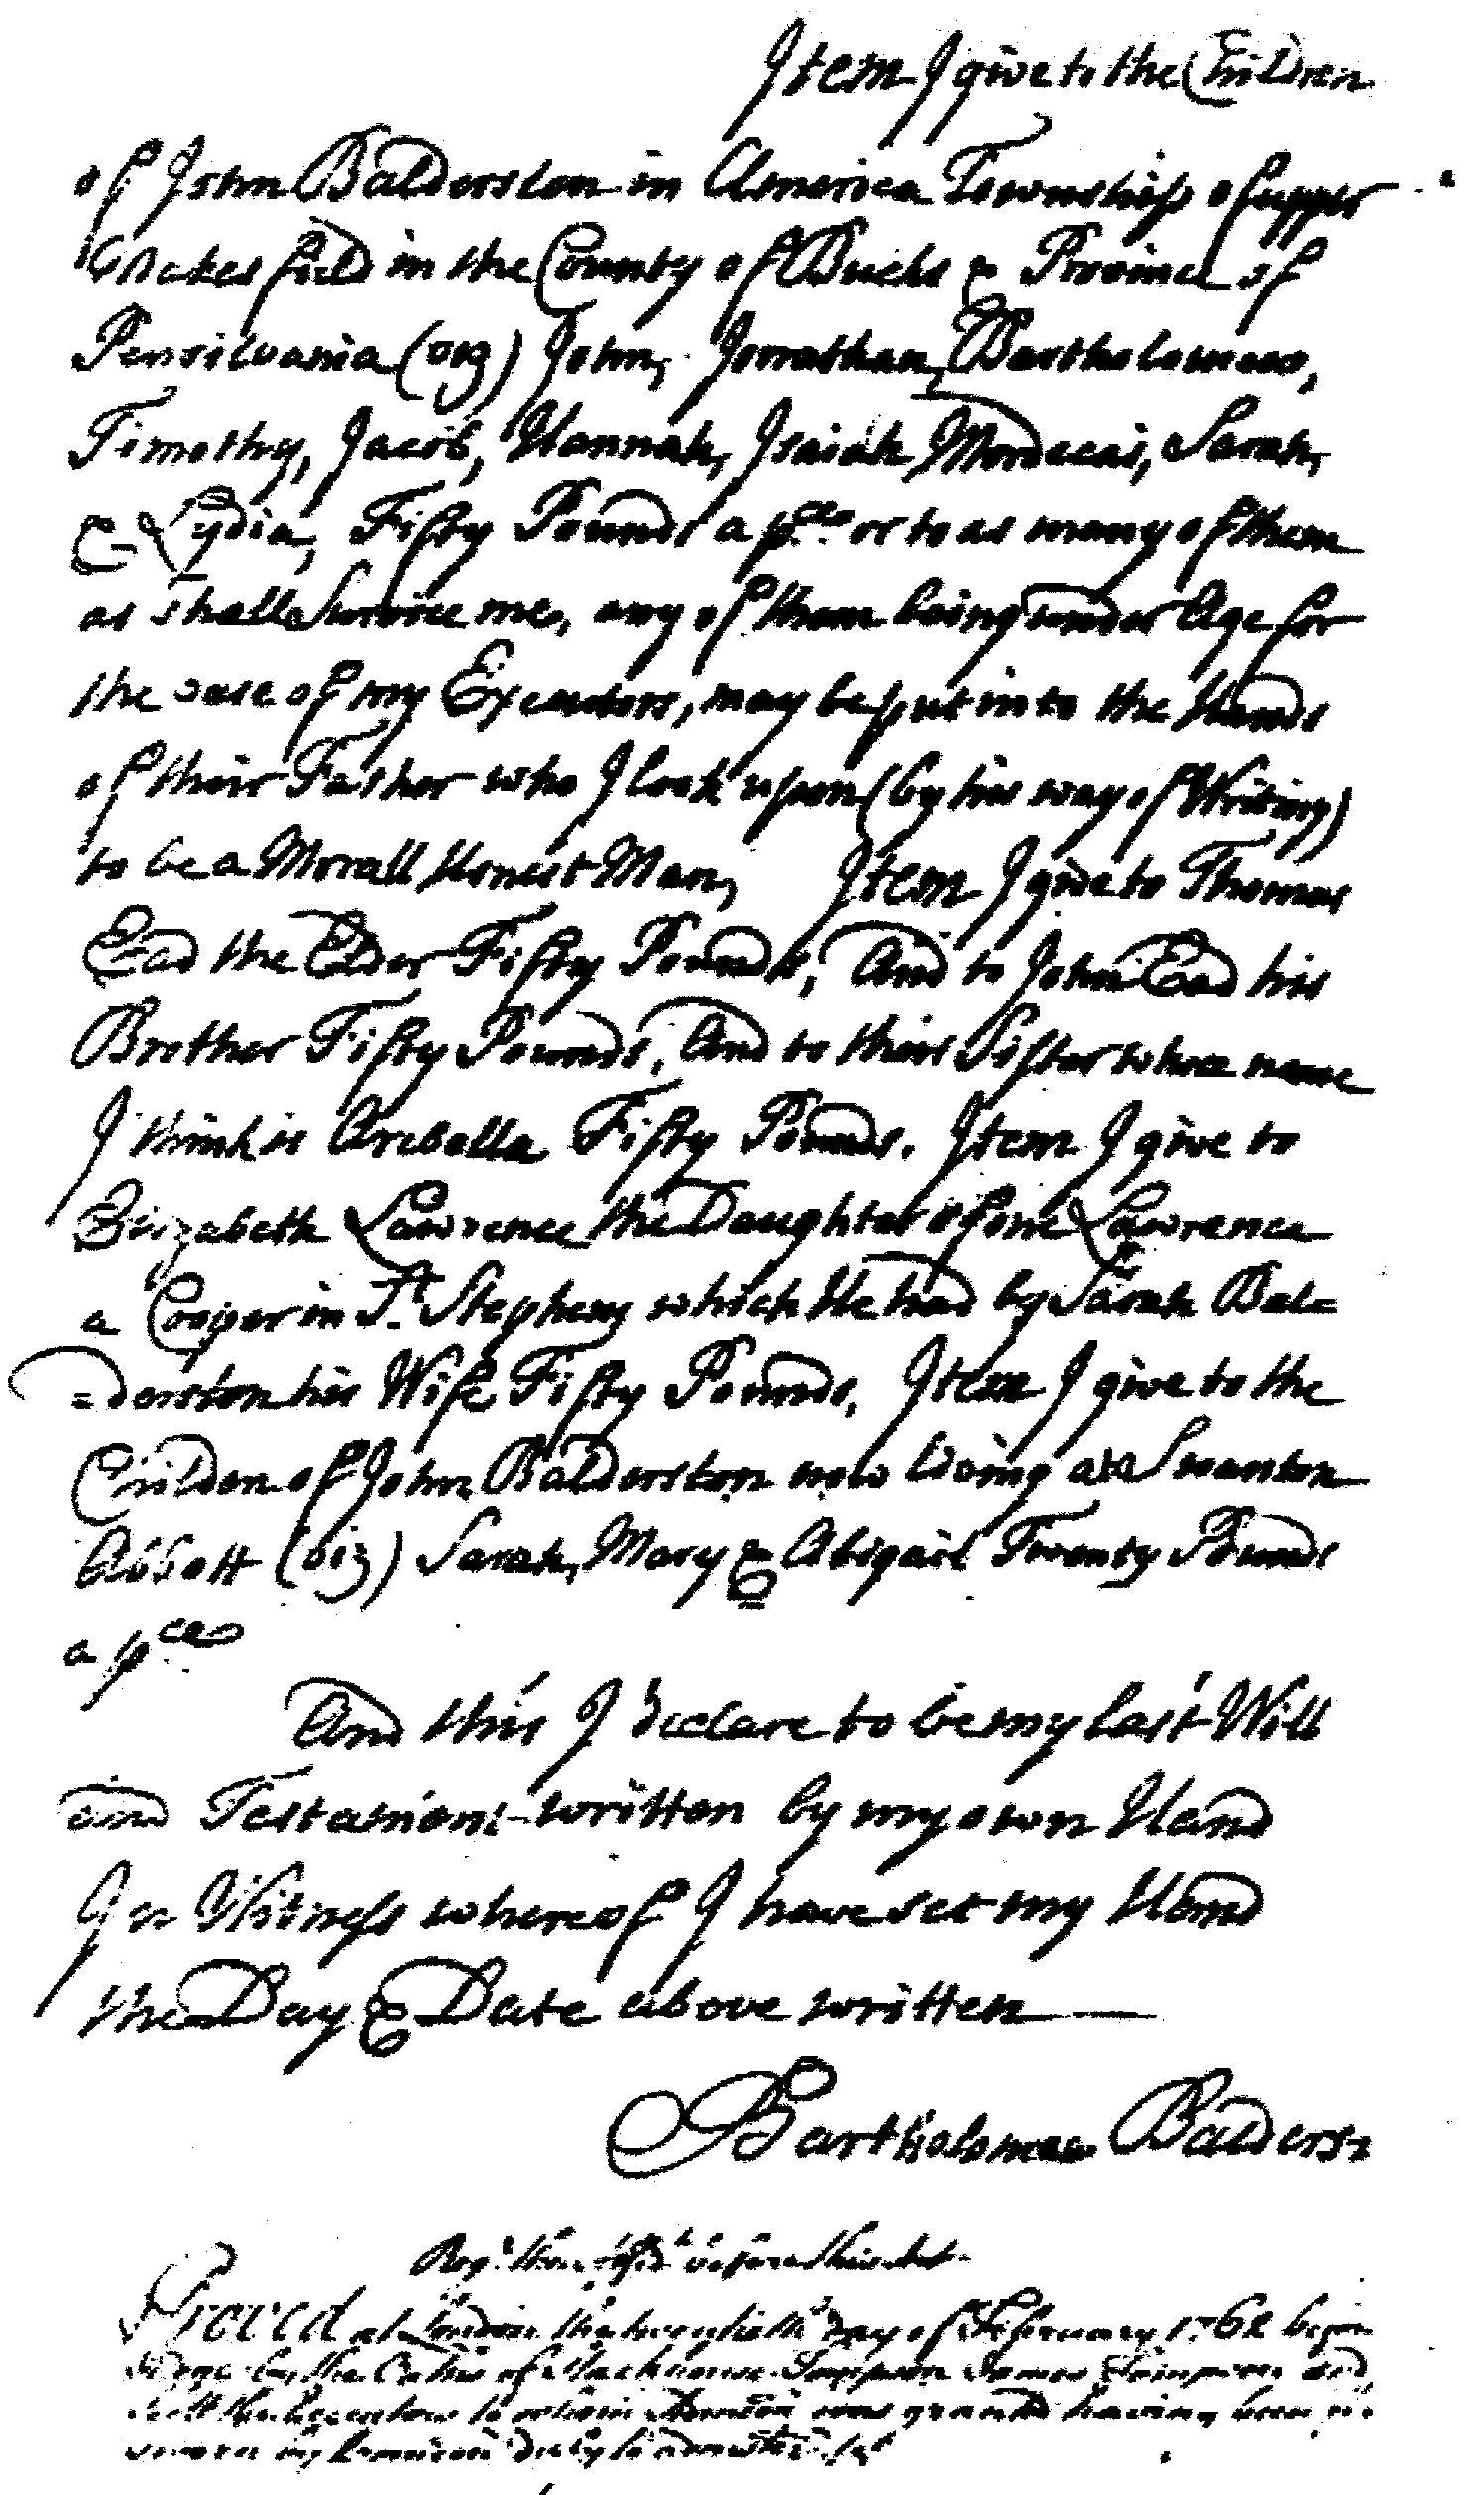 Item I give to the Children
of John Balderston in America Township of upper
Makesfield in the County of Bucks & Province of
Pensilvania (viz) John, Jonathan, Bartholomew,
Timothy, Jacob, Hannah, Isaiah, Mordecai, Sarah,
& Lydia, Fifty Pounds a pce or to as many of them
as shall Survive me, any of them being under Age for
the ease of my Executors, may be put into the Hands
of their Father who I look upon (by his way of Writing)
to be a Morall Honest Man, Item I give to Thomas
Ead the Elder Fifty Pounds, And to John Ead his
Brother Fifty Pounds, And to their Sister whose name
I think is Arebella Fifty Pounds. Item I give to
Elizabeth Lawrence the Daughter of one Lawrence
a Cooper in St. Stephens which He had by Sarah Bal=
=derston his Wife Fifty Pounds, Item I give to the
Children of John Balderston now living at Swanton
Abbott (viz) Sarah, Mary & Abigail Twenty Pounds
a pce
And this I declare to be my last Will
and Testament written by my own Hand
In Witness whereof I have set my Hand
the Day & Date above written
Bartholomew Balders
before
Proved at London the twentieth day of February 1762 before
by the Oaths of James Simpson and
the Executors to whom was granted having been
sworn by duly to